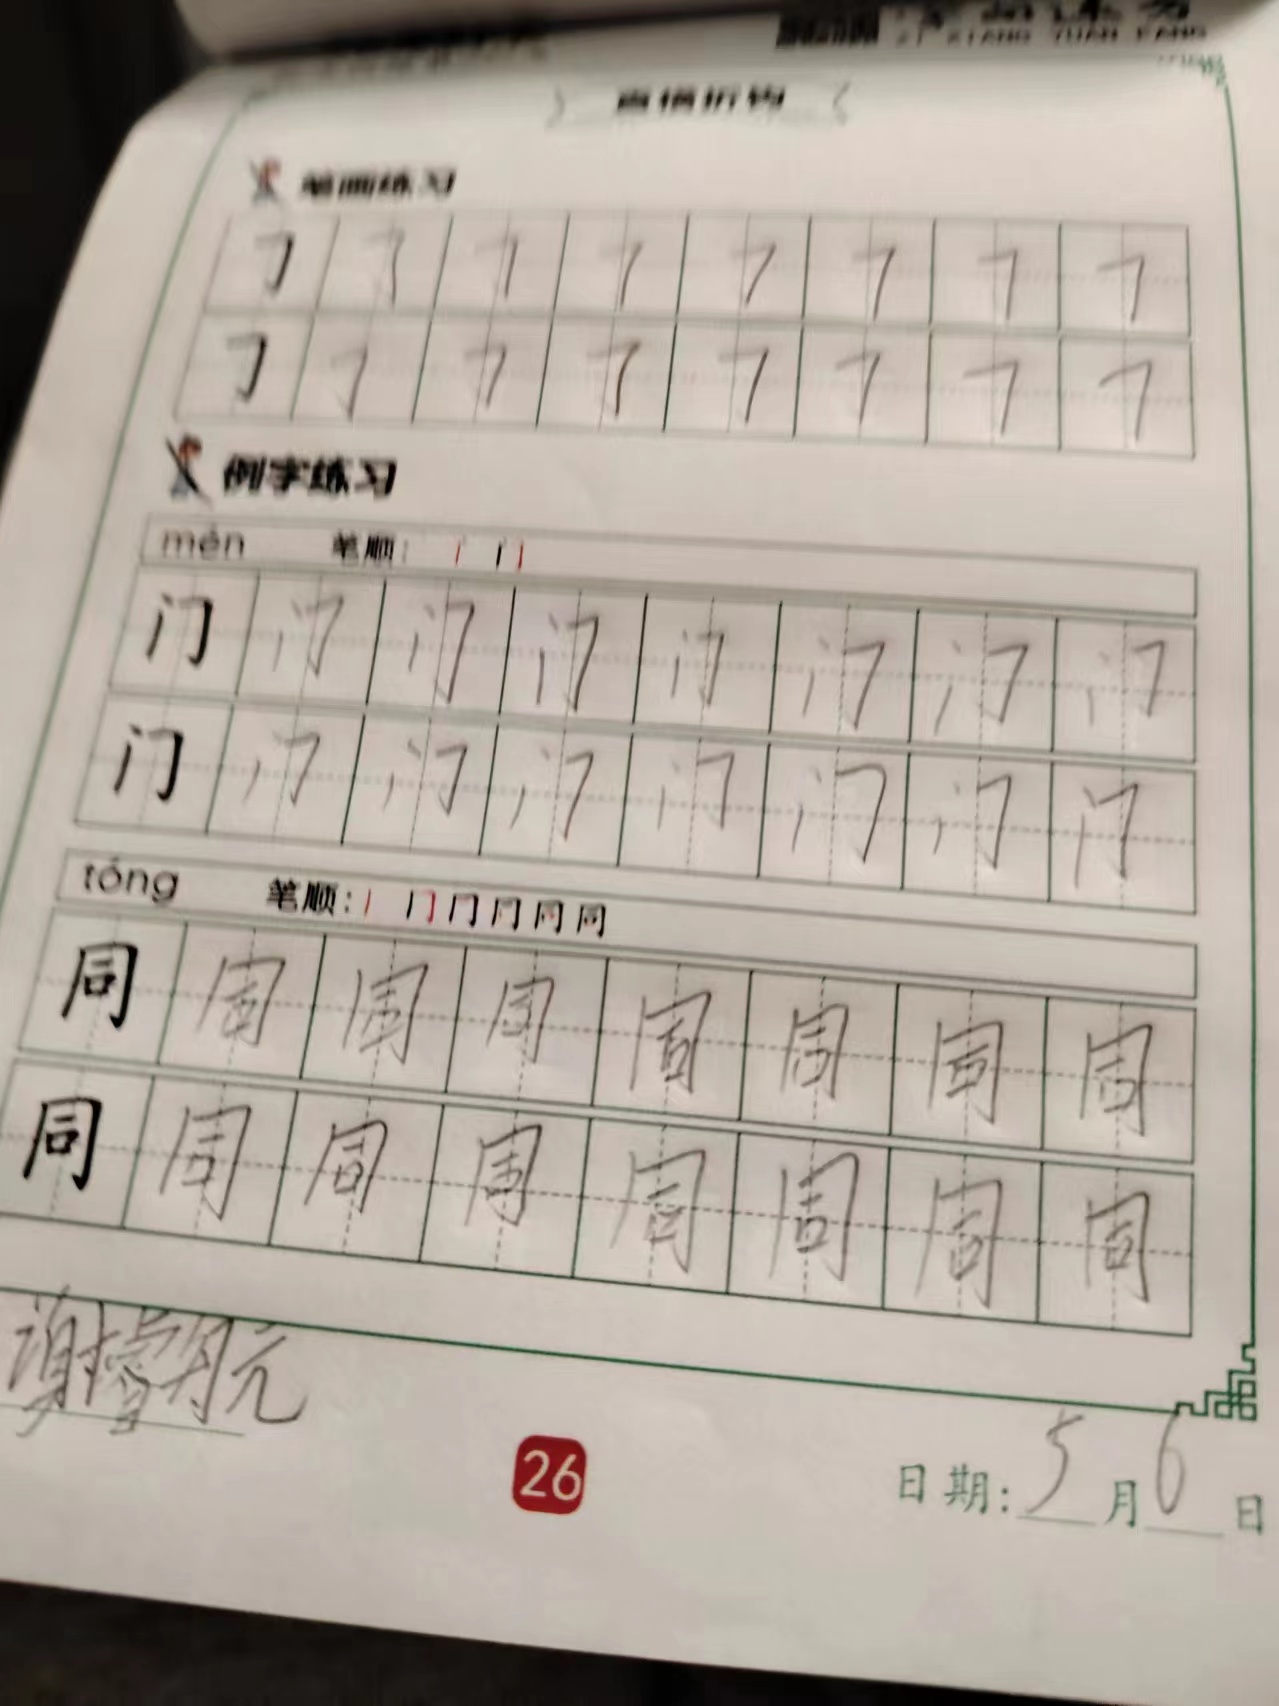 直横折钩
笔画练习
㇆ ㇆ ㇆ ㇆ ㇆ ㇆ ㇆ ㇆
㇆ ㇆ ㇆ ㇆ ㇆ ㇆ ㇆ ㇆
例字练习
mén 笔顺:
门 门 门 门 门 门 门 门
门 门 门 门 门 门 门 门
tóng 笔顺:丨 冂 冂
同 同 同 同 同 同 同 同
同 同 同 同 同 同 同 同
谢
26
日期:5月6日